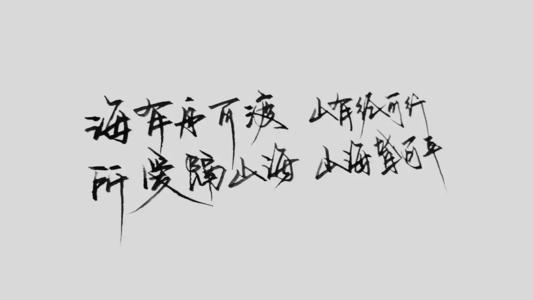 海有舟可渡 山有径可行
所爱隔山海 山海皆可平